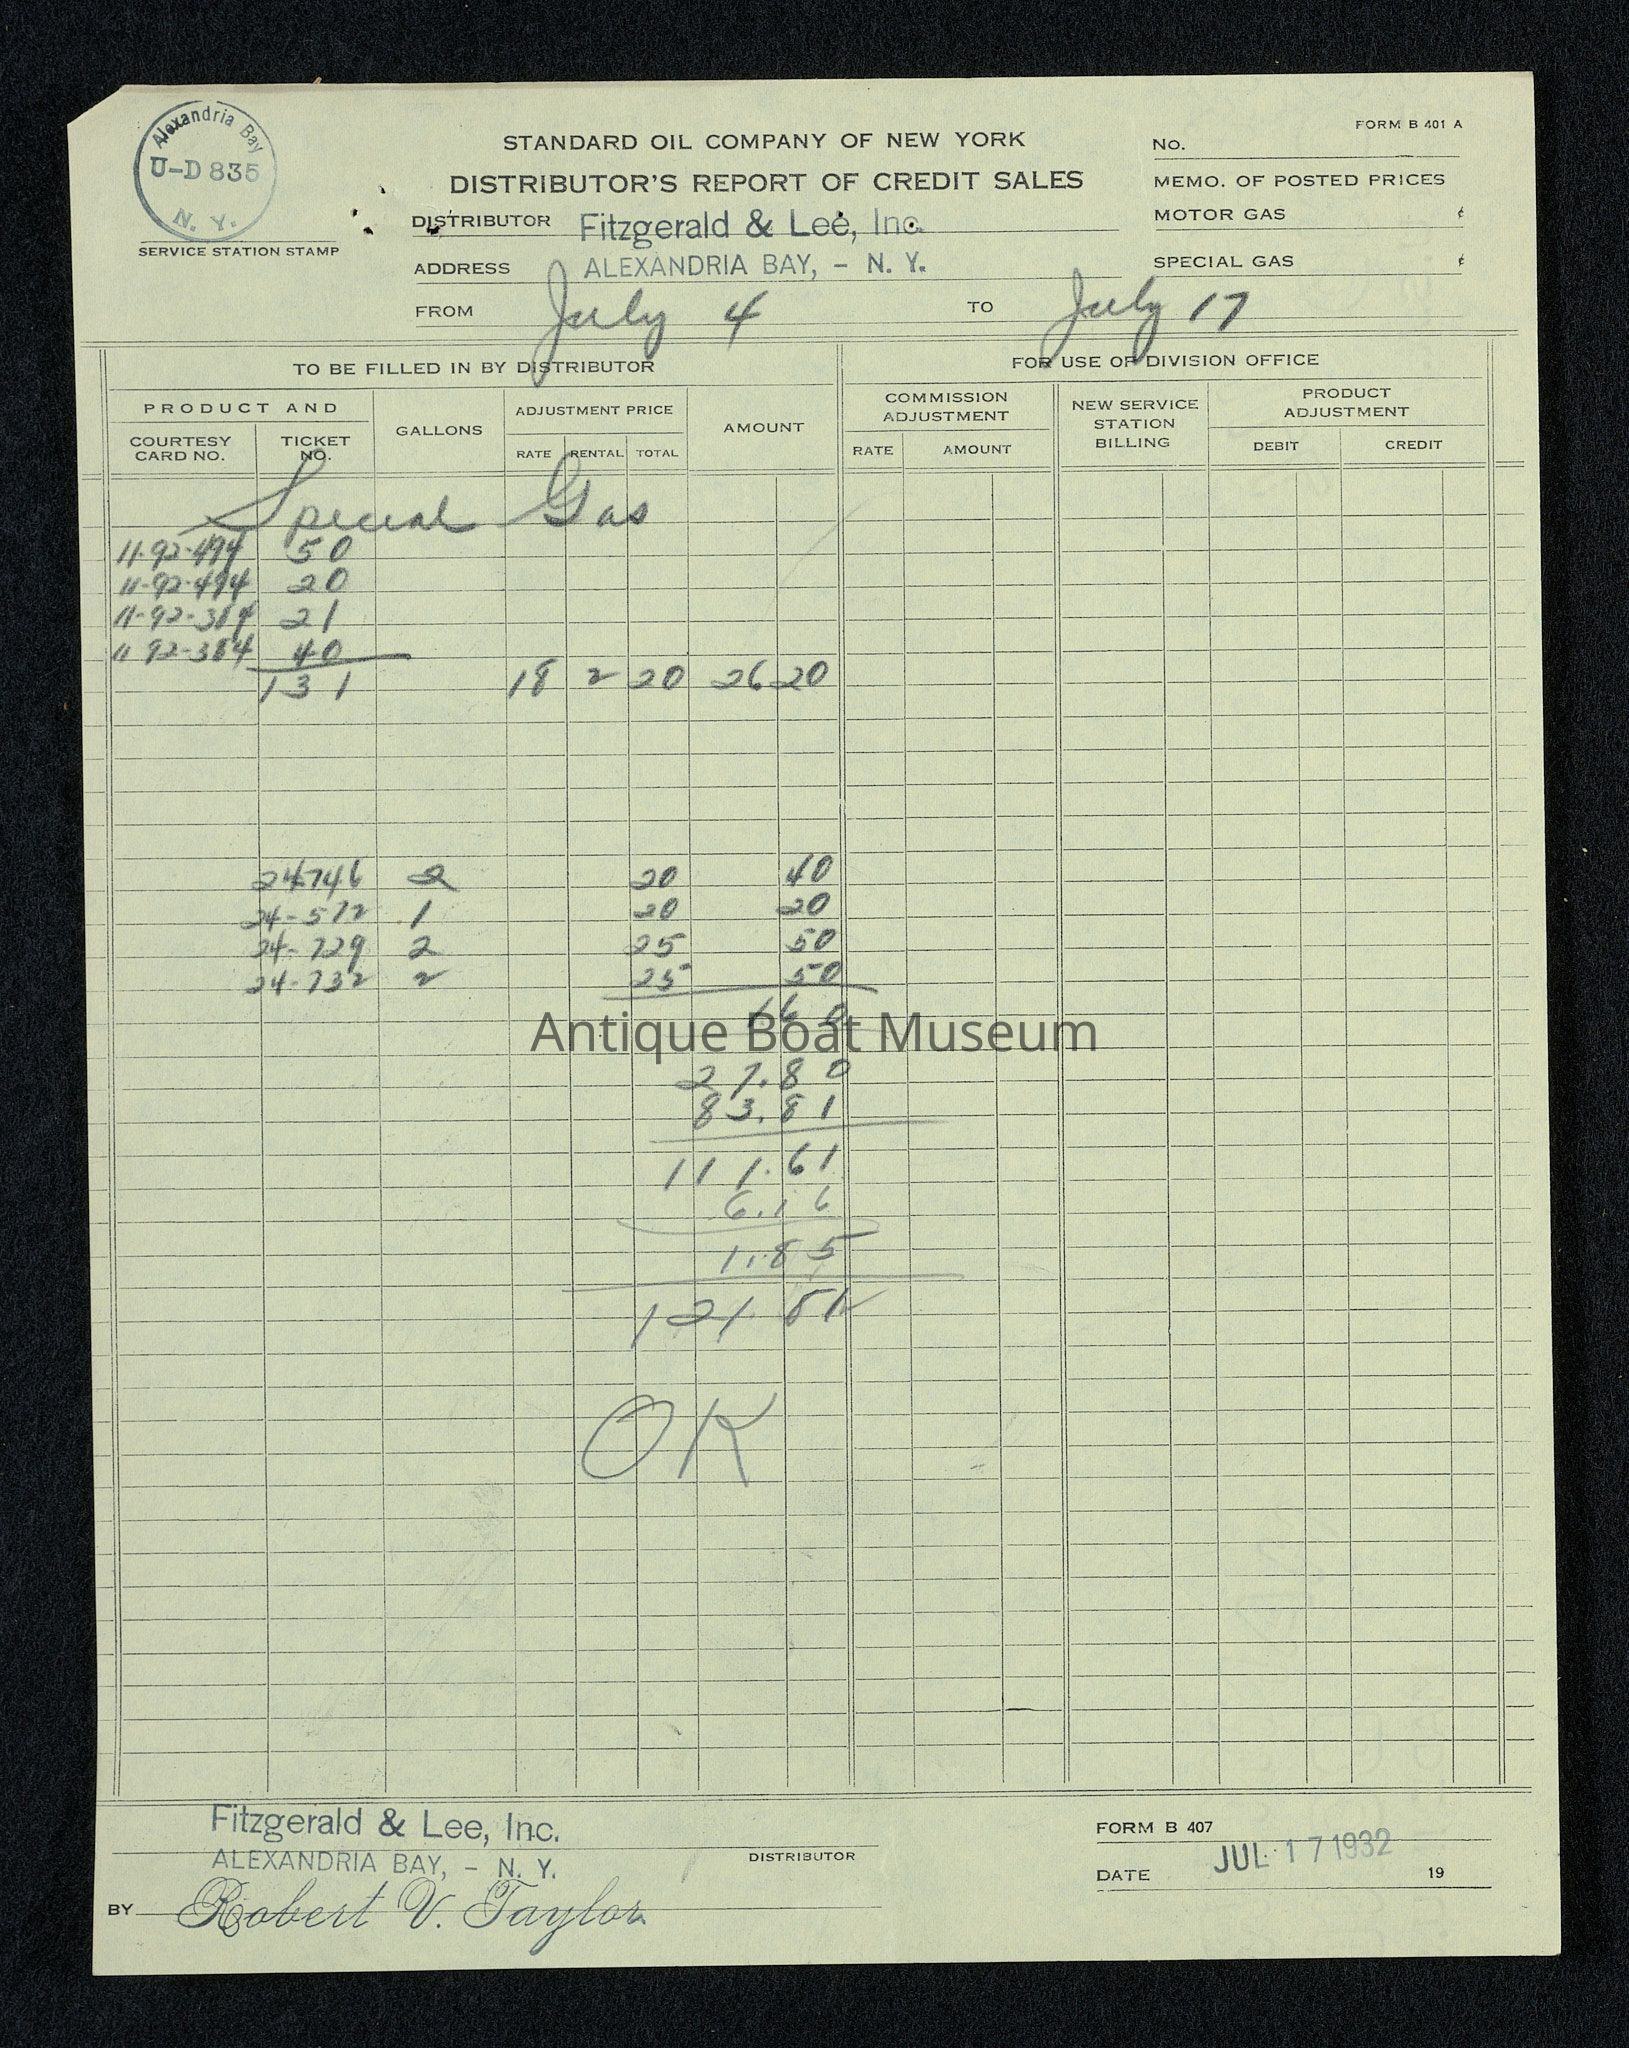 FORM B 401 A
Alexandria Bay
U-D 835
N. Y.
SERVICE STATION STAMP
STANDARD OIL COMPANY OF NEW YORK
DISTRIBUTOR'S REPORT OF CREDIT SALES
DISTRIBUTOR Fitzgerald & Lee, Inc.
ADDRESS ALEXANDRIA BAY, - N. Y.
FROM July 4 TO July 17
No.
MEMO. OF POSTED PRICES
MOTOR GAS ¢
SPECIAL GAS ¢
TO BE FILLED IN BY DISTRIBUTOR FOR USE OF DIVISION OFFICE
PRODUCT AND
COURTESY CARD NO. TICKET NO. GALLONS ADJUSTMENT PRICE RATE RENTAL TOTAL AMOUNT
COMMISSION ADJUSTMENT RATE AMOUNT NEW SERVICE STATION BILLING PRODUCT ADJUSTMENT DEBIT CREDIT
Special Gas
11-92-494 50
11-92-494 20
11-92-384 21
11 92-384 40
131 18 2 20 26 20
24746 2 20 40
24-572 1 20 20
24-729 2 25 50
24-732 2 25 50
1 60
Antique Boat Museum
27.80
83.81
111.61
6.16
1.85
121.51
OK
Fitzgerald & Lee, Inc.
ALEXANDRIA BAY, - N. Y.
DISTRIBUTOR
BY Robert V. Taylor
FORM B 407
DATE JUL 17 1932 19